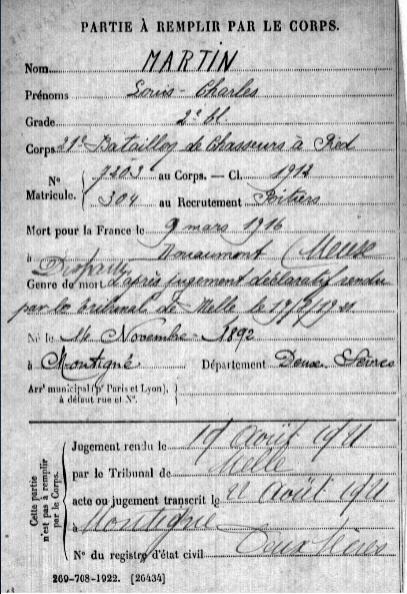 PARTIE À REMPLIR PAR LE CORPS.
Nom MARTIN
Prénoms Louis-Charles
Grade 2e Cl.
Corps 21e Bataillon de Chasseurs à Pied
N° 7203 au Corps. — Cl. 1912
Matricule. 304 au Recrutement Poitiers
Mort pour la France le 9 mars 1916
à Douaumont Meuse
Disparu
Genre de mort d'après jugement déclaratif rendu
par le tribunal de Melle le 19/8/1921
Né le 14 Novembre 1892
à Montigné Département Deux-Sèvres
Arrt municipal (pr Paris et Lyon),
à défaut rue et N°.
Cette partie
n'est pas à remplir
par le Corps.
Jugement rendu le 19 Août 1921
par le Tribunal de Melle
acte ou jugement transcrit le Août 1921
à Montigné
N° du registre d'état civil Deux Sèvres
269-708-1922. [26434]